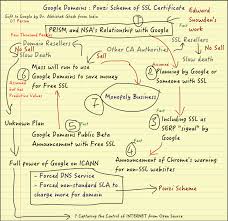 Google Domains : Ponzi Scheme of SSL Certificate
Gift to Google by Dr. Abhishek Ghosh from India
Edward
Snowden's
work
PRISM, and NSA's Relationship with Google
Few Thousand
Domain Resellers
No Sell
Slow Death
Other CA Authorities
SSL Resellers
No Sell
Slow death
Fact
① Mass will run to use
Google Domains to save money
for Free SSL
② Planning by Google or
Someone with SSL
Monopoly Business
Assumed
but has
Predictive Values
Unknown Plan
⑤ Google Domains Public Beta
Announcement with Free SSL
③ Including SSL as
SERP "signal" by
Google
Fact
④
Announcement of Chrome's warning
for non-SSL websites
Full power of Google on ICANN
- Forced DNS Service
- Forced non-standard SLA to
charge more for domain
Ponzi Scheme
? Capturing the Control of INTERNET from Open Source